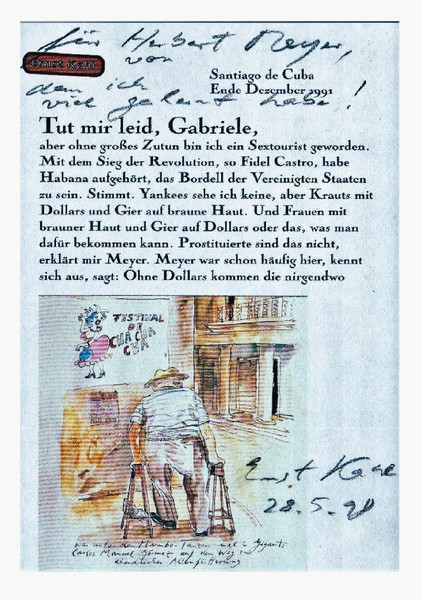 für Herbert Meyer,
Ernst Kahl
von
dem ich
viel gelernt habe!
Santiago de Cuba
Ende Dezember 1991
Tut mir leid, Gabriele,
aber ohne großes Zutun bin ich ein Sextourist geworden.
Mit dem Sieg der Revolution, so Fidel Castro, habe
Habana aufgehört, das Bordell der Vereinigten Staaten
zu sein. Stimmt. Yankees sehe ich keine, aber Krauts mit
Dollars und Gier auf braune Haut. Und Frauen mit
brauner Haut und Gier auf Dollars oder das, was man
dafür bekommen kann. Prostituierte sind das nicht,
erklärt mir Meyer. Meyer war schon häufig hier, kennt
sich aus, sagt: Ohne Dollars kommen die nirgendwo
FESTIVAL
DE
CHA CHA
CHA
Ernst Kahl
den Mambo-Tänzen
Carlos Manuel Gómez auf dem Weg
abendlicher